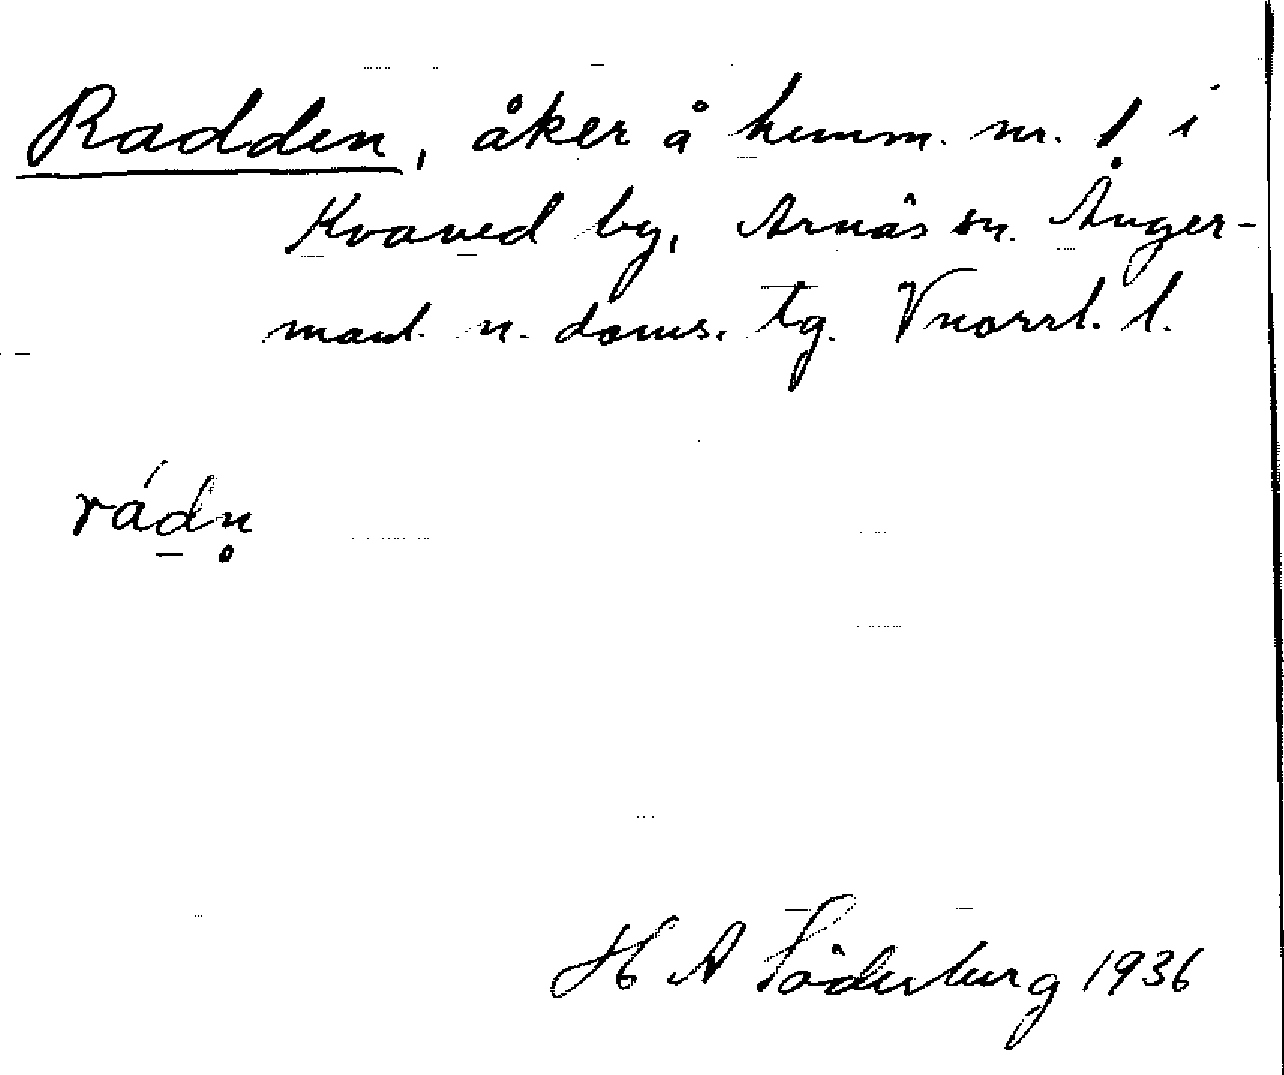 Radden, åker å hemm. nr. 1 i
Kvaved by, Arnäs sn. Ånger-
manl. n. doms. tg. Vnorrl. l.
rád̲n̥
H A Söderberg 1936